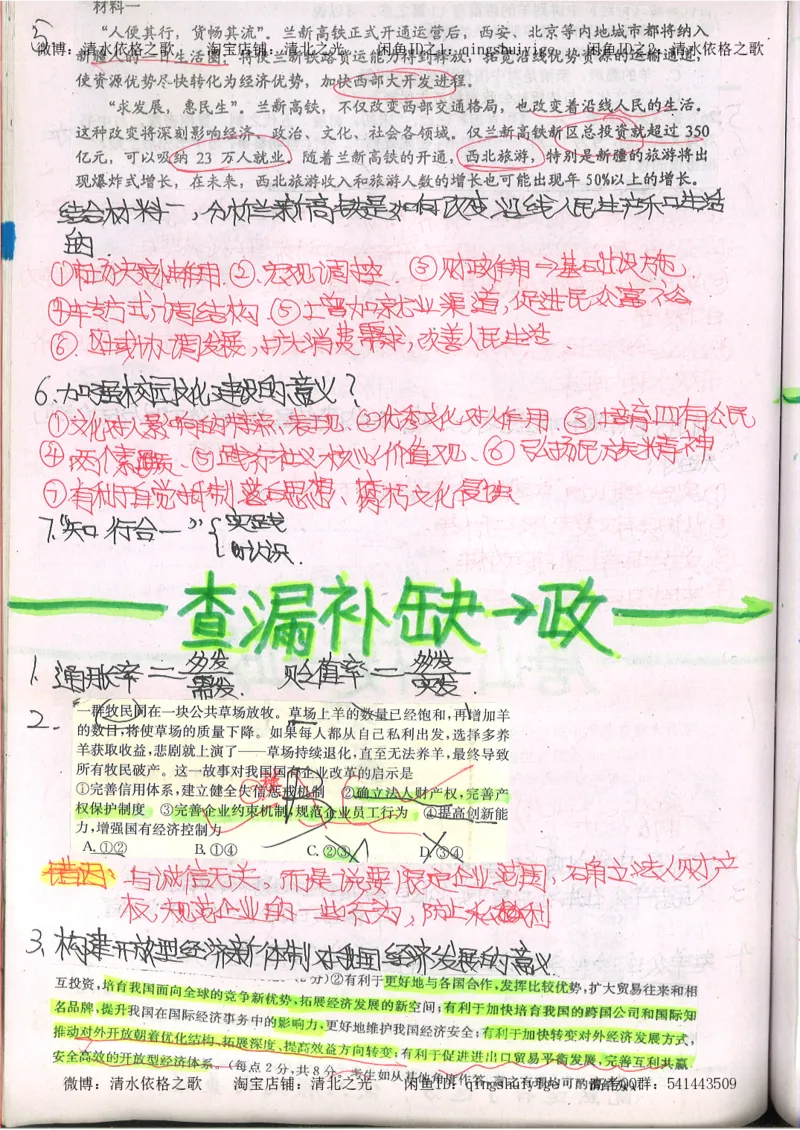 材料一
5
"人便其行，货畅其流"。兰新高铁正式开通运营后，西安、北京等内地城市都将纳入
微博：清水依格之歌 淘宝店铺：清北之光 闲鱼ID之1：qingshuiyige 闲鱼ID之2：清水依格之歌
新疆人的一日生活圈，将使兰新铁路货运能力得到释放，拓宽沿线优势资源的运输通道，
使资源优势尽快转化为经济优势，加快西部大开发进程。
"求发展，惠民生"。兰新高铁，不仅改变西部交通格局，也改变着沿线人民的生活。
这种改变将深刻影响经济、政治、文化、社会各领域。仅兰新高铁新区总投资就超过 350
亿元，可以吸纳 23 万人就业。随着兰新高铁的开通，西北旅游，特别是新疆的旅游将出
现爆炸式增长，在未来，西北旅游收入和旅游人数的增长也可能出现年 50%以上的增长。
结合材料一，分析兰新高铁是如何改变沿线人民生产和生活
的．
①市场决定性作用．②、宏观调控． ③财政作用→基础设施．
④转变方式，调结构．⑤拓宽就业渠道，促进民众富裕
⑥．区域协调发展，扩大消费需求，改善人民生活．
6.加强校园文化建设的意义？
①文化对人影响的特点、表现、②优秀文化对人作用、③培育四有公民
④两个素质、⑤践行社义核心价值观、⑥弘扬民族精神
⑦有利于自觉抵制落后思想、腐朽文化侵蚀．
7."知行合一"{实践
认识．
查漏补缺→政
1. 通胀率＝多发/需发． 贬值率＝多发/实发．
2. 一群牧民同在一块公共草场放牧。草场上羊的数量已经饱和，再增加羊
的数目，将使草场的质量下降。如果每人都从自己私利出发，选择多养
羊获取收益，悲剧就上演了——草场持续退化，直至无法养羊，最终导致
所有牧民破产。这一故事对我国国有企业改革的启示是
①完善信用体系，建立健全失信惩戒机制 ②确立法人财产权，完善产
权保护制度 ③完善企业约束机制，规范企业员工行为 ④提高创新能
力，增强国有经济控制力
A.①② B.①④ C.②③ D.③④
错因：与诚信无关，而是说要限定企业范围，石角立法人财产
权，规范企业的一些行为，防止私利
3、构建开放型经济新体制对我国经济发展的意义．
分)②有利于更好地与各国合作，发挥比较优势，扩大贸易往来和相
互投资，培育我国面向全球的竞争新优势，拓展经济发展的新空间；有利于加快培育我国的跨国公司和国际知
名品牌，提升我国在国际经济事务中的影响力，更好地维护我国经济安全；有利于加快转变对外经济发展方式，
推动对外开放朝着优化结构、拓展深度、提高效益方向转变；有利于促进进出口贸易平衡发展，完善互利共赢、
安全高效的开放型经济体系。(每点 2 分，共 8 分。考生如从其他角度作答，
微博：清水依格之歌 淘宝店铺：清北之光 闲鱼ID：qingshuiyige QQ群：541443509